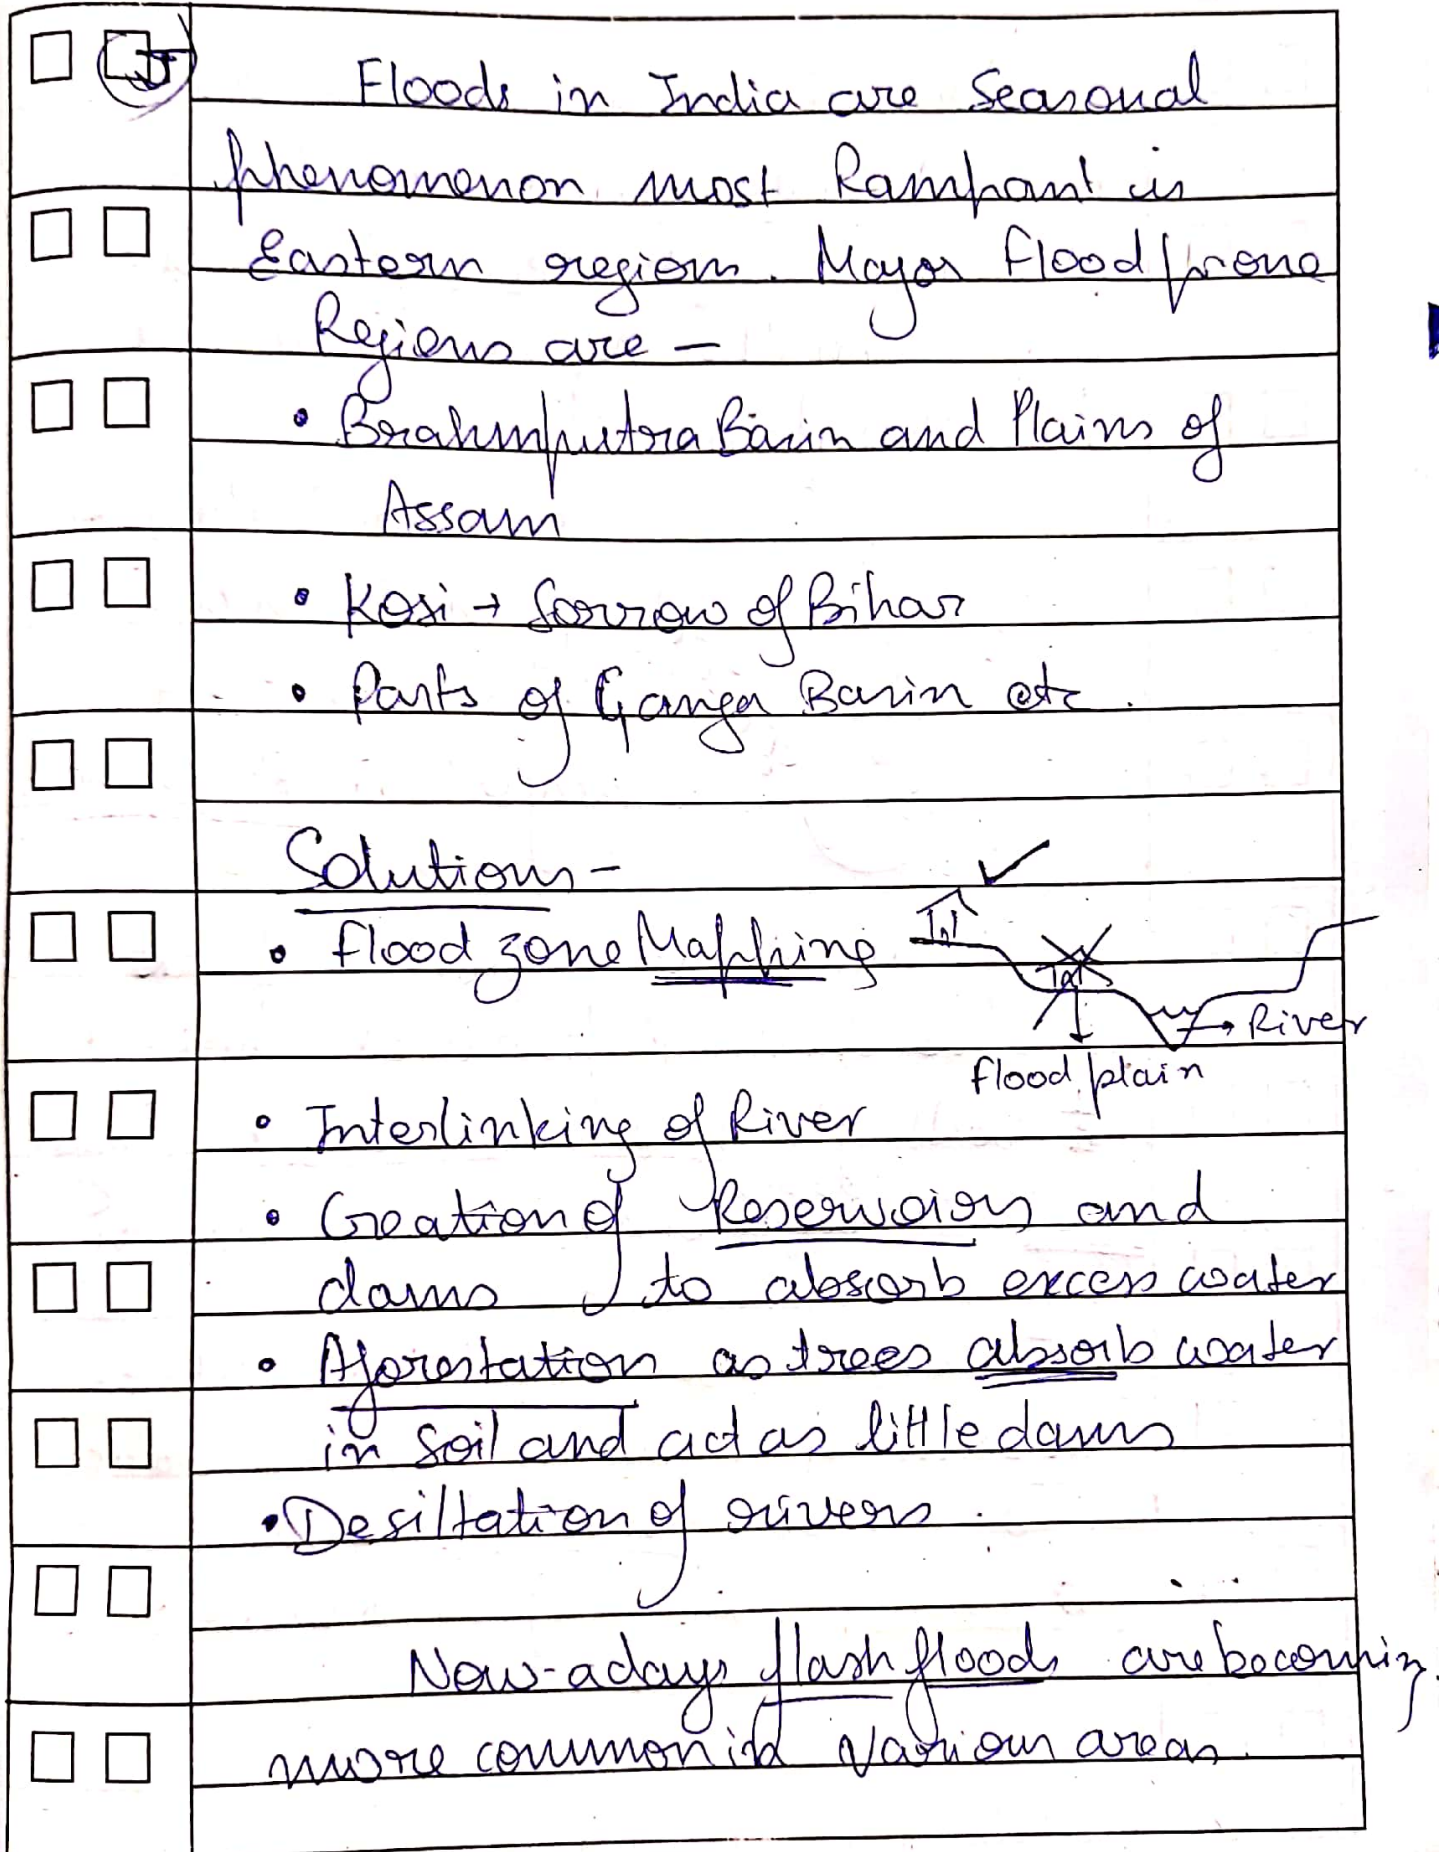 Floods in India are Seasonal
phenomenon most Rampant in
Eastern regions. Major flood prone
Regions are –
• Brahmputra Basin and Plains of
Assam
• Kosi → Sorrow of Bihar
• Parts of Ganga Basin etc.
Solutions -
• flood zone Mapping
→ River
flood plain
• Interlinking of River
• Creation of Reservoirs and
dams to absorb excess water
• Aforestation as trees absorb water
in soil and act as little dams
• Desiltation of rivers.
Now-a days flash floods are becoming
more common in various areas.